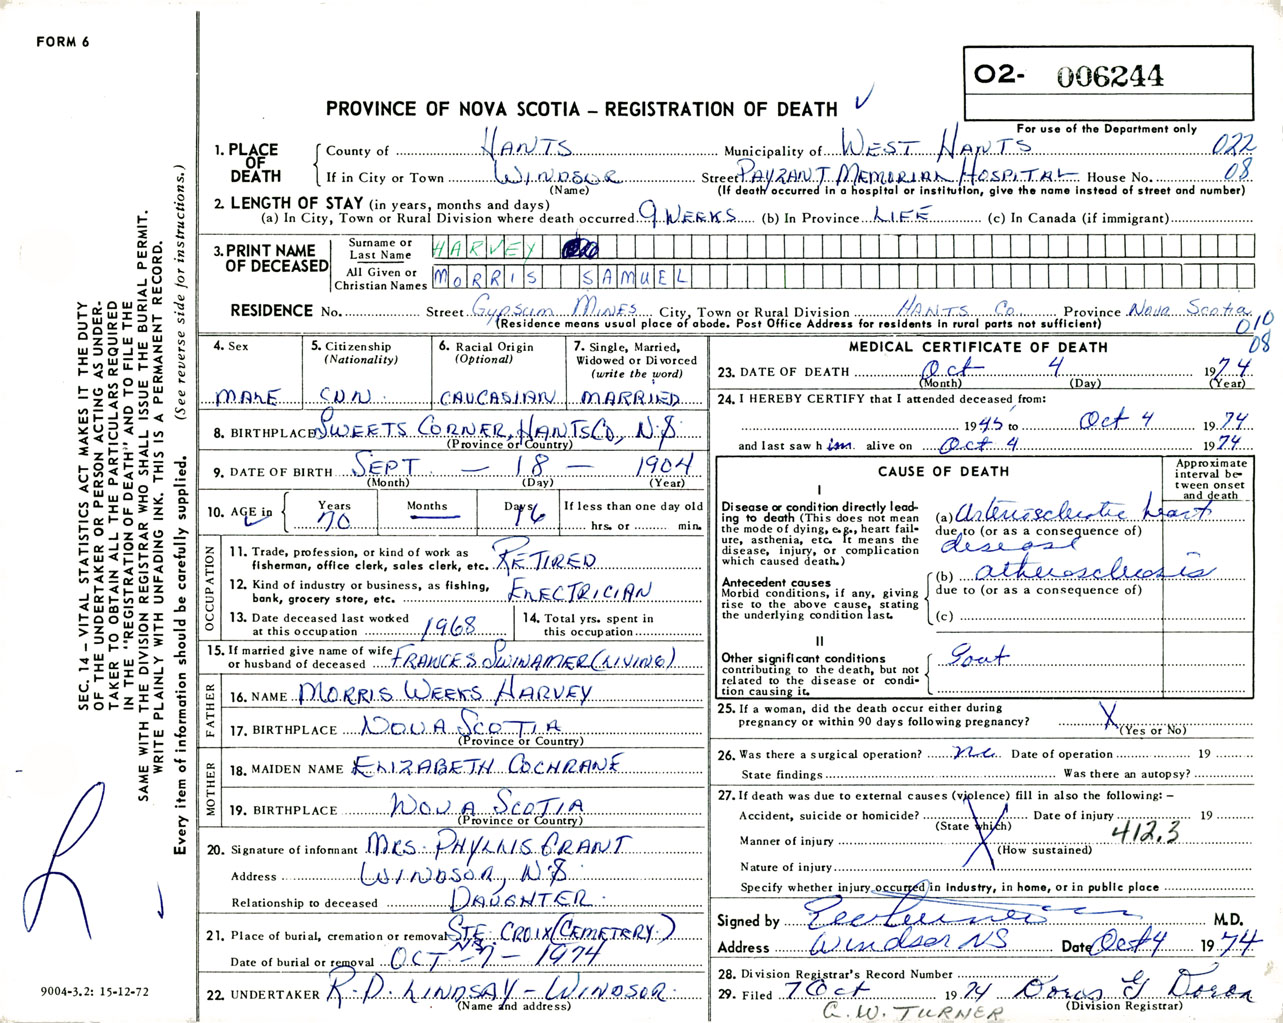 FORM 6
O2- 006244
PROVINCE OF NOVA SCOTIA – REGISTRATION OF DEATH ✓
For use of the Department only
1. PLACE OF DEATH
County of HANTS Municipality of WEST HANTS 022
If in City or Town WINDSOR Street PAYZANT MEMORIAL HOSPITAL House No. 08
(Name) (If death occurred in a hospital or institution, give the name instead of street and number)
2. LENGTH OF STAY (in years, months and days)
(a) In City, Town or Rural Division where death occurred 9 WEEKS (b) In Province LIFE (c) In Canada (if immigrant)
3. PRINT NAME OF DECEASED
Surname or Last Name HARVEY
All Given or Christian Names MORRIS SAMUEL
RESIDENCE No. Street Gypsum MINES City, Town or Rural Division HANTS Co Province Nova Scotia
(Residence means usual place of abode. Post Office Address for residents in rural parts not sufficient) 010
08
4. Sex MALE
5. Citizenship (Nationality) CDN
6. Racial Origin (Optional) CAUCASIAN
7. Single, Married, Widowed or Divorced (write the word) MARRIED
8. BIRTHPLACE SWEETS CORNER, HANTS CO, N.S
(Province or Country)
9. DATE OF BIRTH SEPT – 18 – 1904
(Month) (Day) (Year)
10. AGE in Years 70 Months — Days 16 If less than one day old
hrs. or min.
OCCUPATION
11. Trade, profession, or kind of work as fisherman, office clerk, sales clerk, etc. RETIRED
12. Kind of industry or business, as fishing, bank, grocery store, etc. ELECTRICIAN
13. Date deceased last worked at this occupation 1968
14. Total yrs. spent in this occupation
15. If married give name of wife or husband of deceased FRANCES SWINAMER (LIVING)
FATHER
16. NAME MORRIS WEEKS HARVEY
17. BIRTHPLACE NOVA SCOTIA
(Province or Country)
MOTHER
18. MAIDEN NAME ELIZABETH COCHRANE
19. BIRTHPLACE NOVA SCOTIA
(Province or Country)
20. Signature of informant MRS. PHYLLIS GRANT
Address WINDSOR, N.S
Relationship to deceased DAUGHTER.
21. Place of burial, cremation or removal STE. CROIX (CEMETERY.)
NS
Date of burial or removal OCT – 7 – 1974
22. UNDERTAKER R. D. LINDSAY – WINDSOR.
(Name and address)
MEDICAL CERTIFICATE OF DEATH
23. DATE OF DEATH Oct 4 1974
(Month) (Day) (Year)
24. I HEREBY CERTIFY that I attended deceased from:
1945 to Oct 4 1974
and last saw h im alive on Oct 4 1974
CAUSE OF DEATH
Approximate interval between onset and death
I
Disease or condition directly leading to death (This does not mean the mode of dying, e.g., heart failure, asthenia, etc. It means the disease, injury, or complication which caused death.)
(a) Arteriosclerotic heart
due to (or as a consequence of)
disease
Antecedent causes
Morbid conditions, if any, giving rise to the above cause, stating the underlying condition last.
(b) atherosclerosis
due to (or as a consequence of)
(c)
II
Other significant conditions contributing to the death, but not related to the disease or condition causing it.
Gout
25. If a woman, did the death occur either during pregnancy or within 90 days following pregnancy? X
(Yes or No)
26. Was there a surgical operation? no. Date of operation 19
State findings Was there an autopsy?
27. If death was due to external causes (violence) fill in also the following: –
Accident, suicide or homicide? Date of injury 19
(State which)
Manner of injury 412.3
(How sustained)
Nature of injury
Specify whether injury occurred in Industry, in home, or in public place
Signed by M.D.
Address Windsor NS Date Oct 4 1974
28. Division Registrar's Record Number
29. Filed 7 Oct 1974 Doris G Doran
(Division Registrar)
G.W. TURNER
SEC. 14 – VITAL STATISTICS ACT MAKES IT THE DUTY
OF THE UNDERTAKER OR PERSON ACTING AS UNDER-
TAKER TO OBTAIN ALL THE PARTICULARS REQUIRED
IN THE "REGISTRATION OF DEATH" AND TO FILE THE
SAME WITH THE DIVISION REGISTRAR WHO SHALL ISSUE THE BURIAL PERMIT.
WRITE PLAINLY WITH UNFADING INK. THIS IS A PERMANENT RECORD.
Every item of information should be carefully supplied. (See reverse side for instructions.)
9004-3.2: 15-12-72